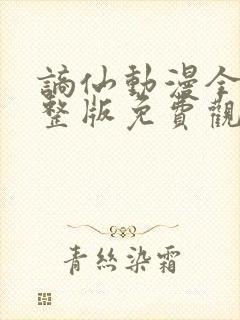 謫仙動漫全
整版免費觀
青絲染霜